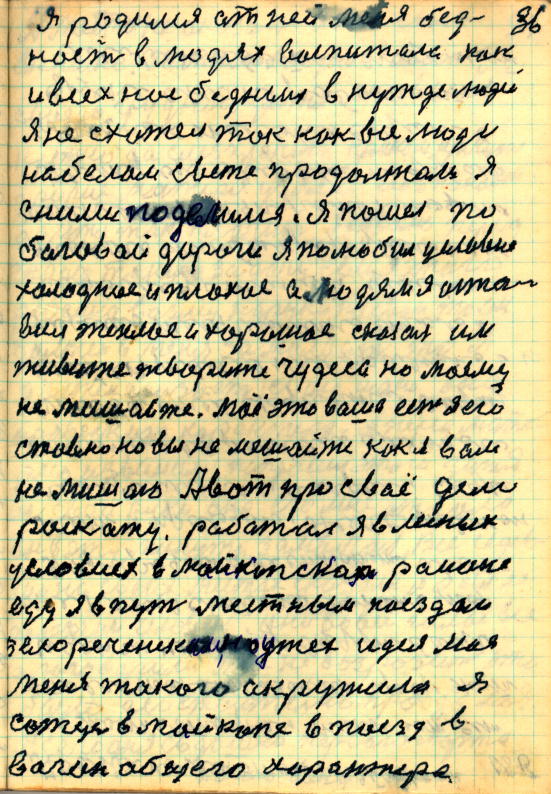 Я родился от ней меня бед- 36
ность в людях воспитала как
и всех нас бедных в нужде людей
Я не схотел так как все люди
на белом свете продолжали Я
сними поделился. Я пошел по
баговай дороги я полюбил условие
холодное и плохое а людям я оста-
вил теплое и хорошое сказал им
живите творите чудеса но моему
не мишайте. Моё это ваше есть я его
ставлю но вы не мешайте как я вам
не мишаю А вот про своё дело
роскажу. работал я в лесных
условиех в майкопскаya районе
еду я в путь местным поездом
белореченская идея моя
меня такого акружила я
сажусь в майкопе в поезд в
вагон общего характера